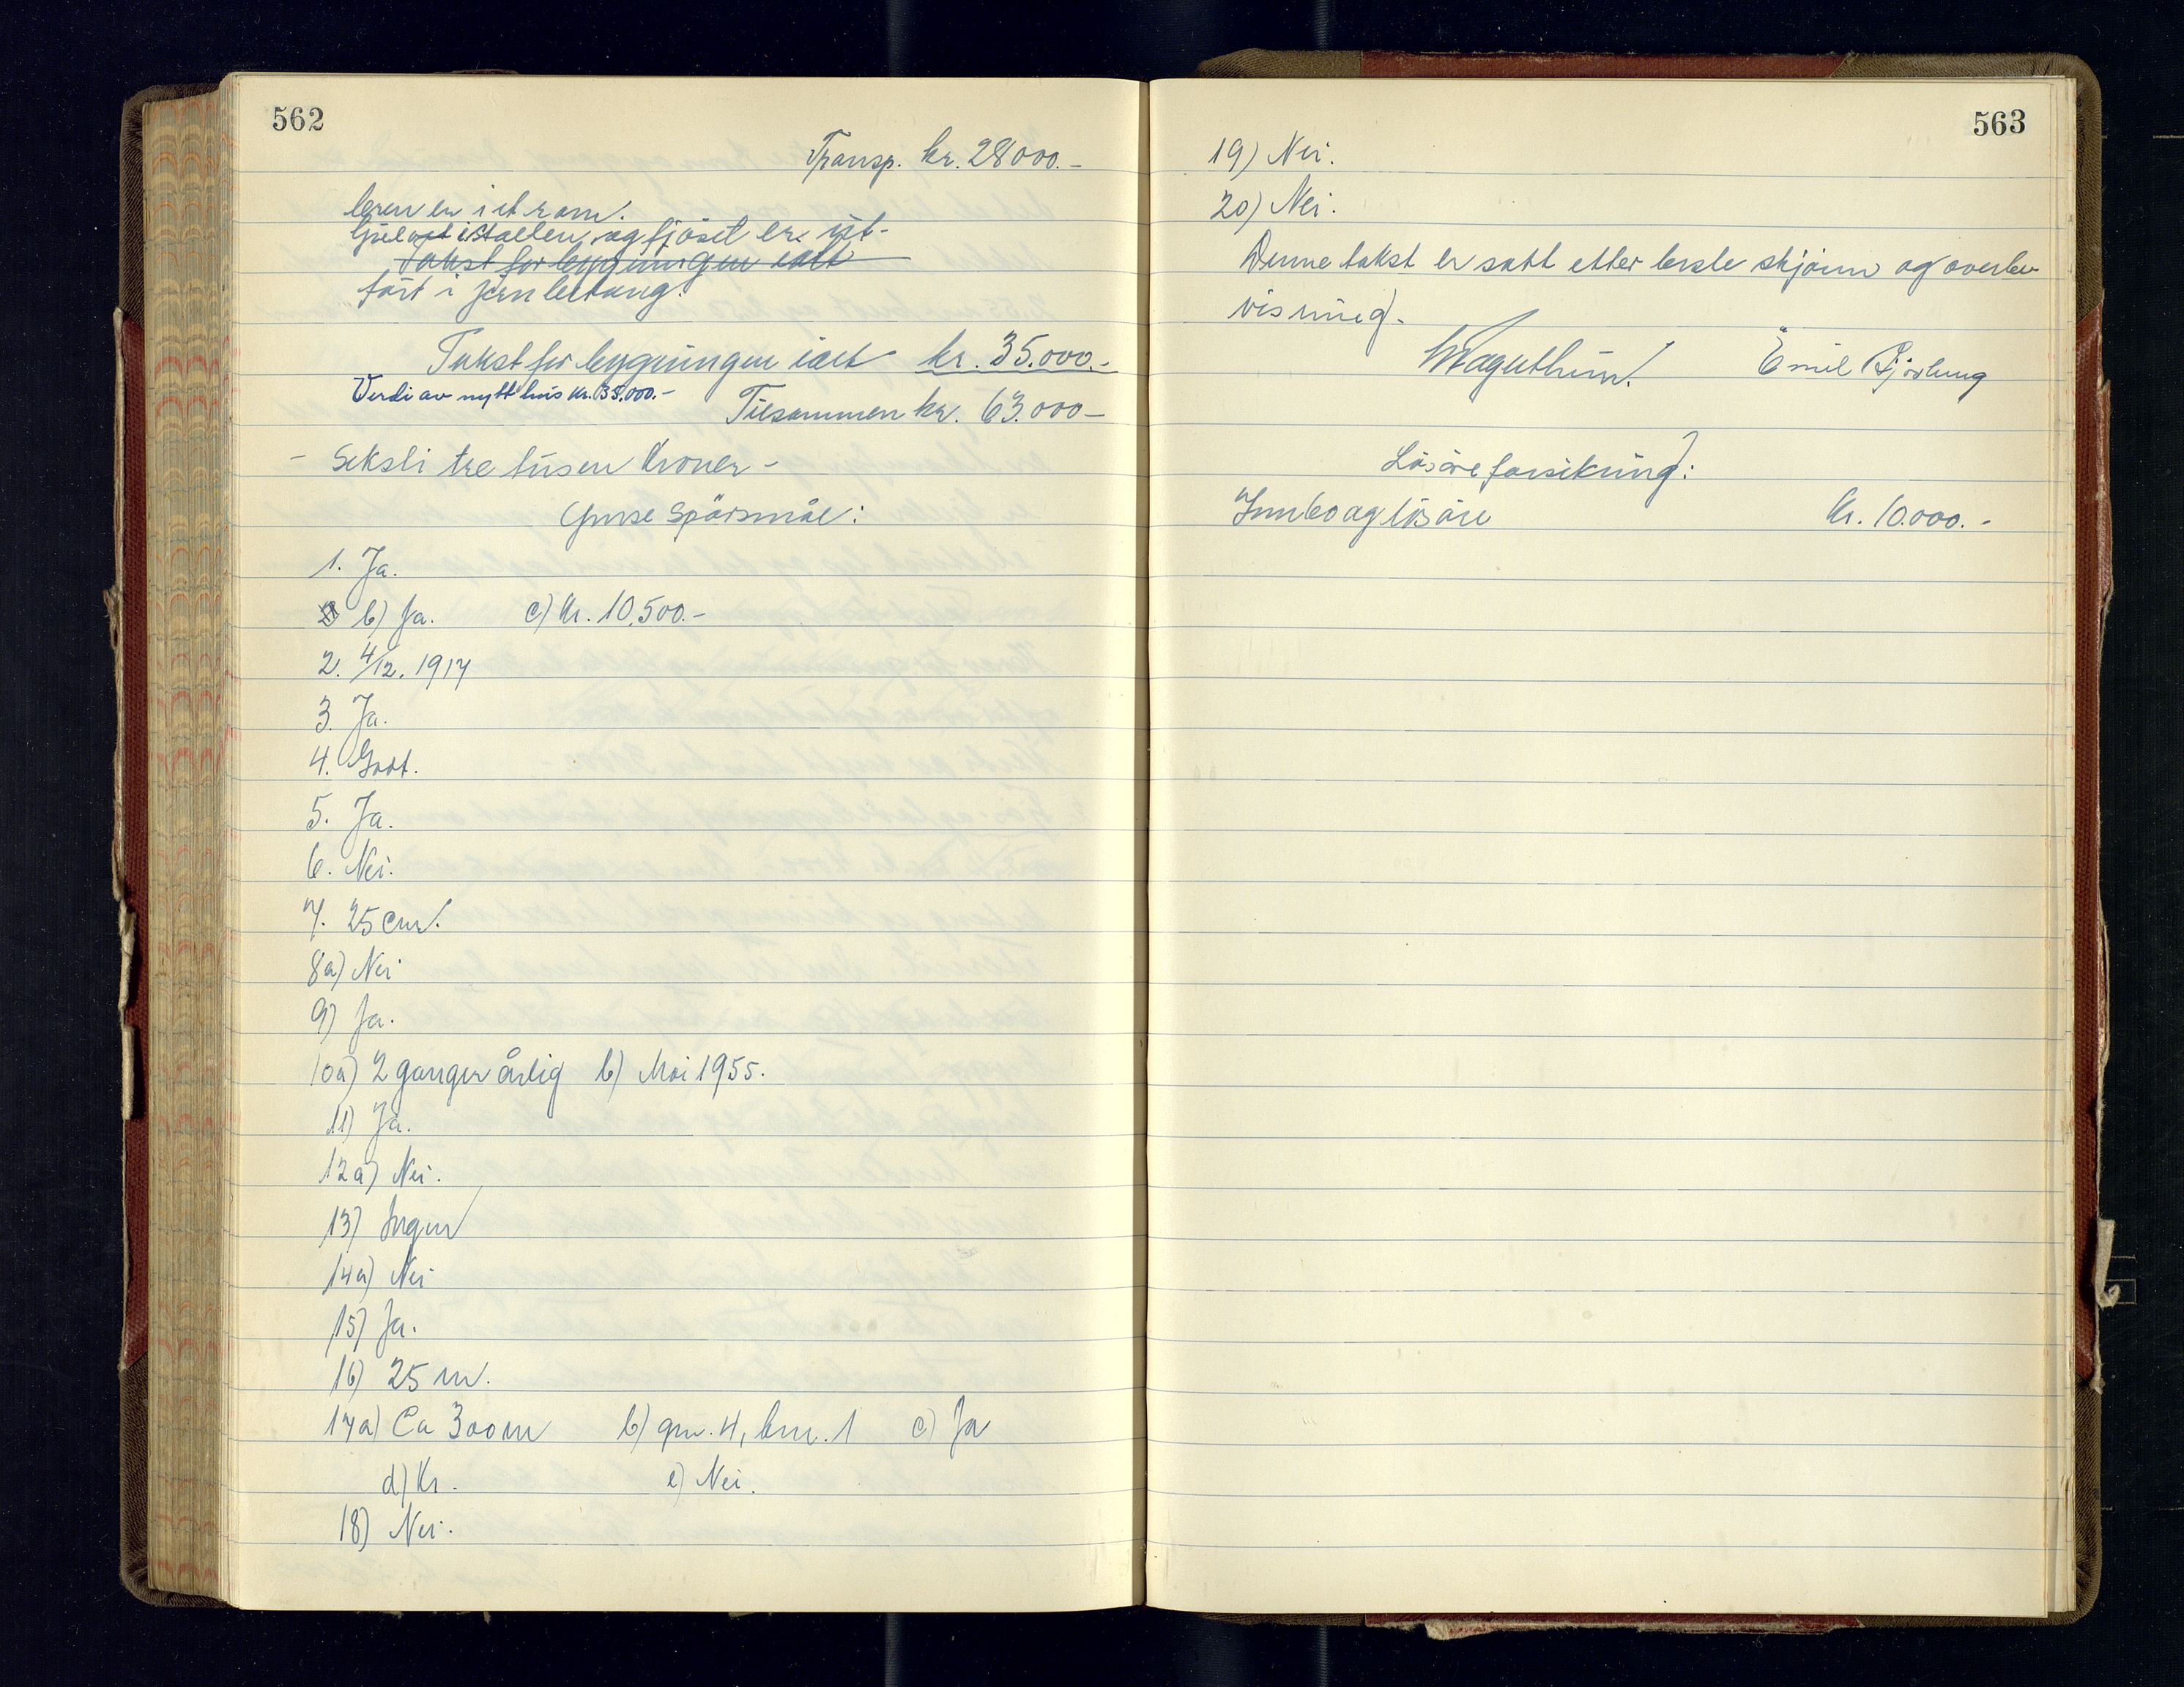 562
Transp. kr. 28000.-
leren er i et rom.
Gulvet i stallen og fjöset er ut-
Takst for bygningen ialt
fört i jernbetong.
Takst for bygningen ialt kr. 35.000.-
Verdi av nytt hus kr. 38.000.-
Tilsammen kr. 63.000-
- Seksti tre tusen Kroner -
Spörsmål:
1. Ja.
b) Ja. c) Kr. 10.500.-
2. 4/12. 1917
3. Ja.
4. Godt.
5. Ja.
6. Nei.
7. 25 cm.
8a) Nei
9) Ja.
10a) 2 ganger årlig b) Mai 1955.
11) Ja.
12a) Nei.
13) Ingen
14a) Nei
15) Ja.
16) 25 m.
17a) Ca 300 m b) gnr. 4, bnr. 1 c) Ja
d) Kr. e) Nei.
18) Nei.
563
19) Nei.
20) Nei.
Denne takst er satt etter beste skjönn og overbe-
visning.
Emil
Lösöreforsikring:
Innbo og lösöre kr. 10.000.-